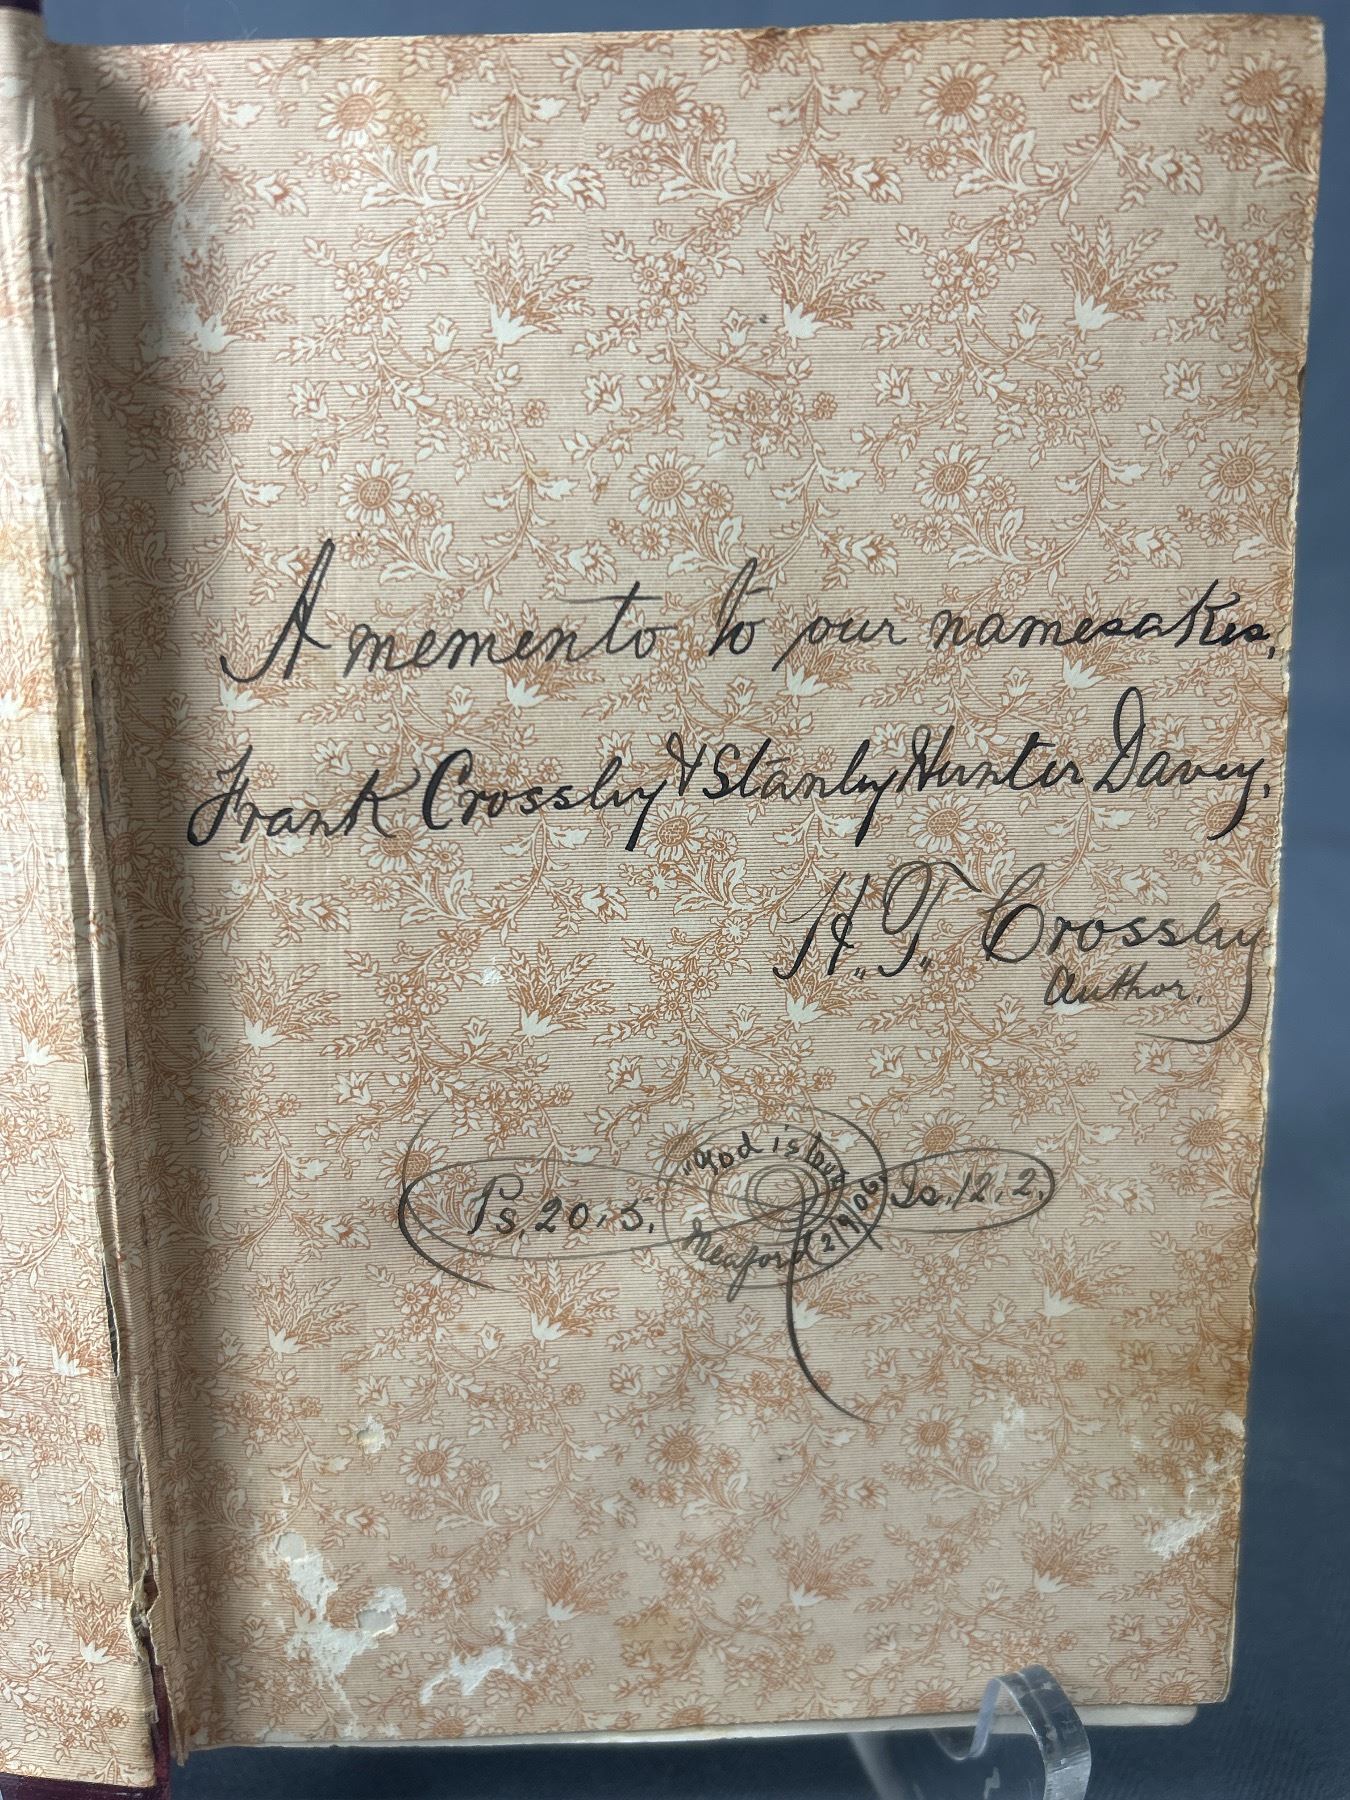 A memento to our namesakes,
Frank Crossley & Stanley Hunter Davey,
H. T. Crossley
Author.
Ps. 20. 5.
"God is love
Meaford 2/9/06
Is. 12. 2.